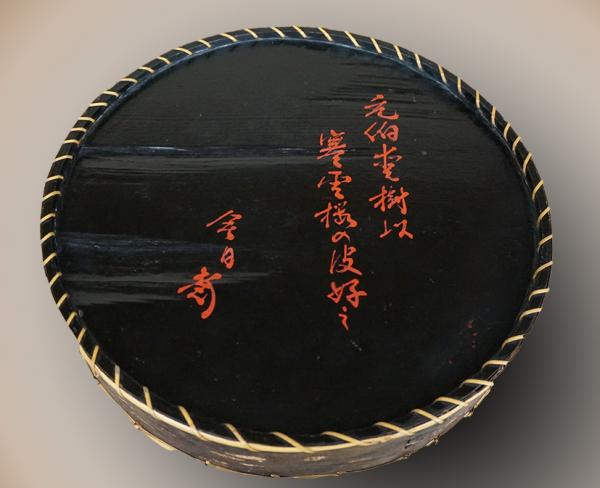 元伯愛樹以
寒雲桜の皮好之
今日